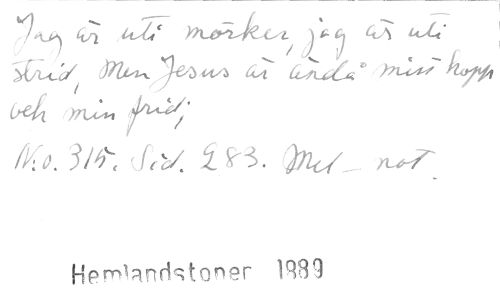 Jag är uti mörker, jag är uti
strid, Men Jesus är ändå mitt hopp
och min frid;
N:o. 315. Sid. 283. Mel – not.
Hemlandstoner 1889